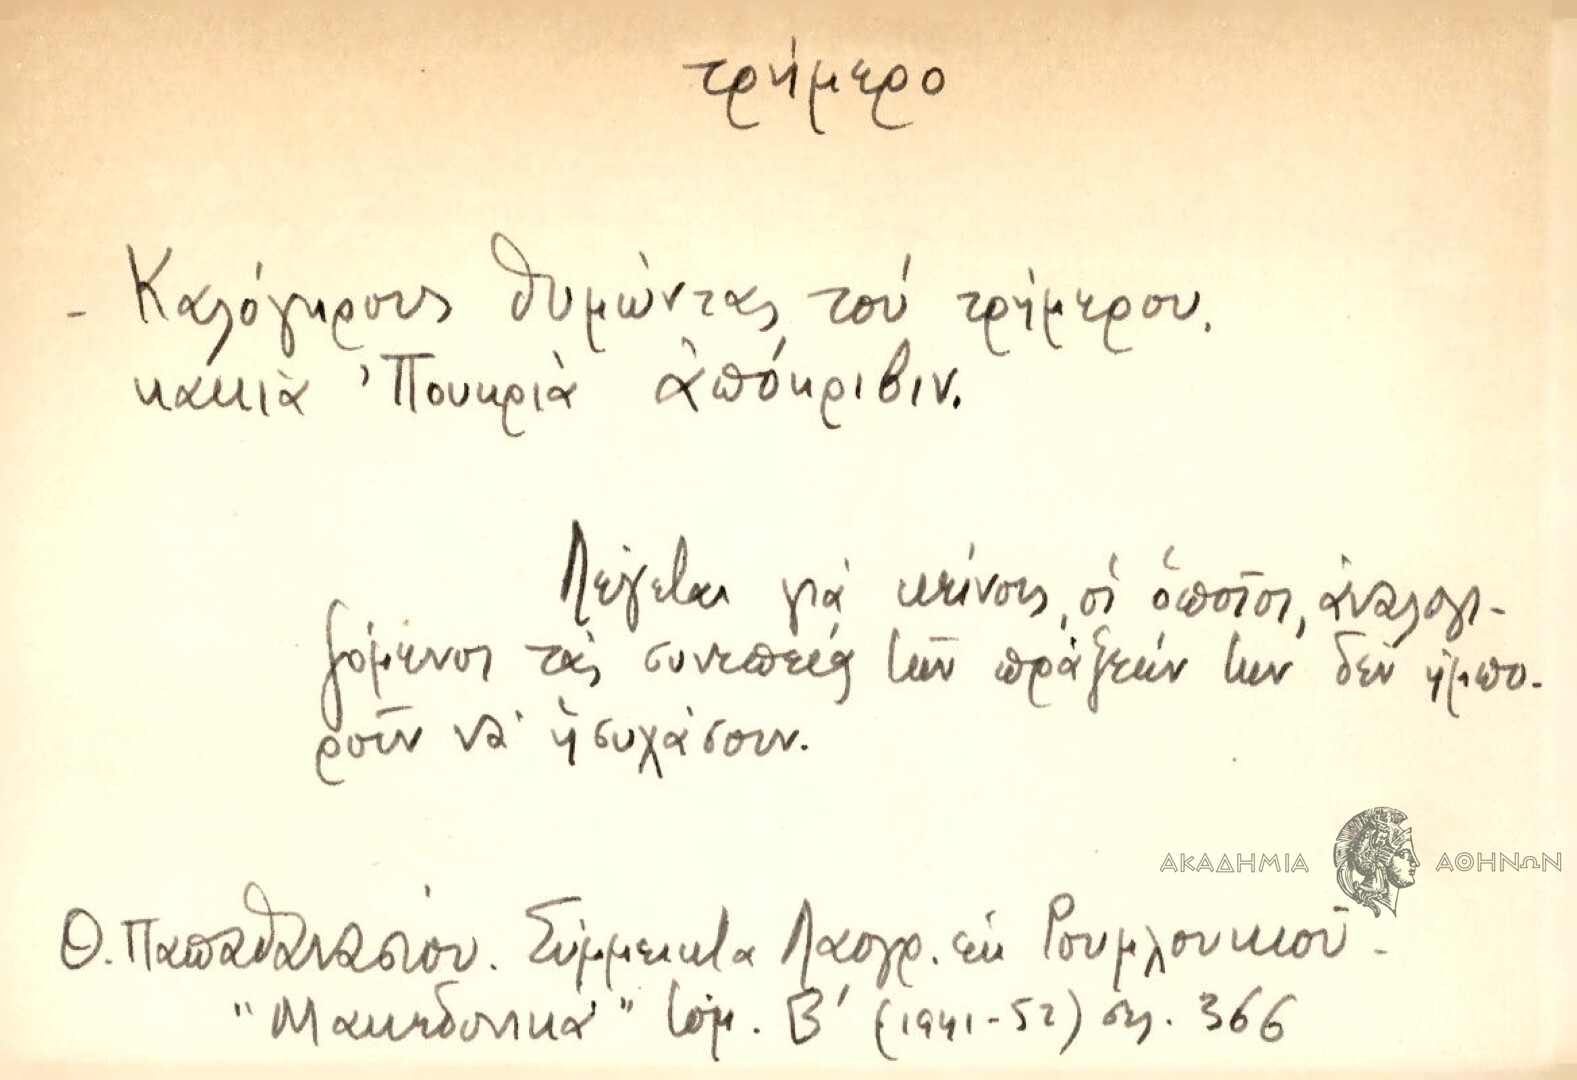 τρήμερο
- Καλόγηρους θυμώντας τού τρήμερου.
κακιά 'Πουκριά ἀπόκριβιν.
Λέγεται γιά κείνους, οἱ ὁποῖοι, ἀναλογι-
ζόμενοι τάς συνεπείας τῶν πράξεών των δέν ἠμπο-
ροῦν νά ἡσυχάσουν.
ΑΚΑΔΗΜΙΑ ΑΘΗΝΩΝ
Θ. Παπαθανασίου. Σύμμεικτα Λαογρ. ἐκ Ρουμλουκιοῦ -
"Μακεδονικά" τόμ. Β' (1941-52) σελ. 366